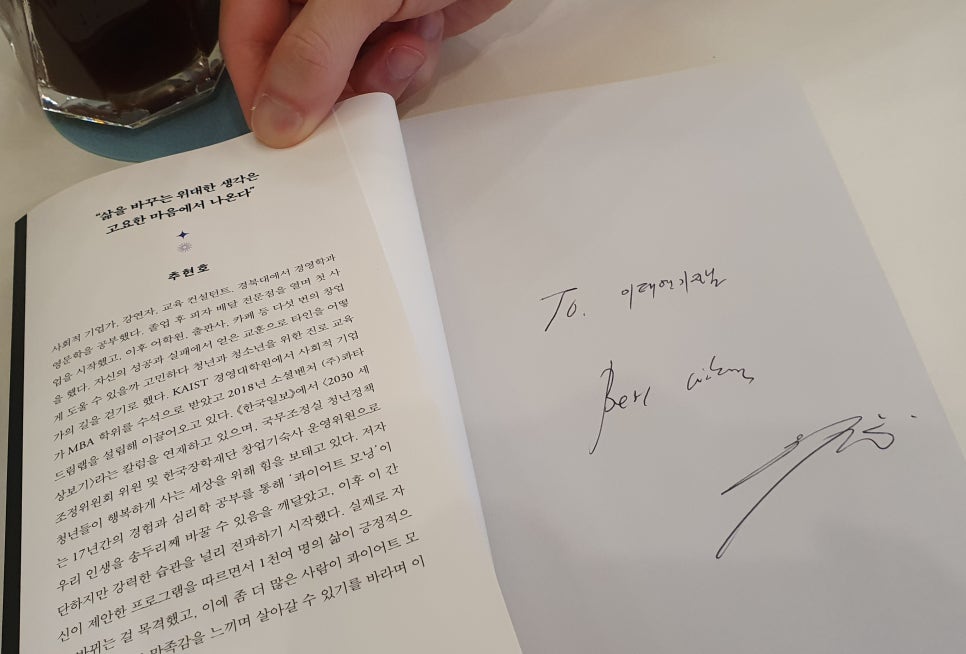 "삶을 바꾸는 위대한 생각은
고요한 마음에서 나온다"
추현호
사회적 기업가, 강연자, 교육 컨설턴트. 경북대에서 경영학과
영문학을 공부했다. 졸업 후 피자 배달 전문점을 열며 첫 사
업을 시작했고, 이후 어학원, 출판사, 카페 등 다섯 번의 창업
을 했다. 자신의 성공과 실패에서 얻은 교훈으로 타인을 어떻
게 도울 수 있을까 고민하다 청년과 청소년을 위한 진로 교육
가의 길을 걷기로 했다. KAIST 경영대학원에서 사회적 기업
가 MBA 학위를 수석으로 받았고 2018년 소셜벤처 (주)콰타
드림랩을 설립해 이끌어오고 있다. 《한국일보》에서 〈2030 세
상보기〉라는 칼럼을 연재하고 있으며, 국무조정실 청년정책
조정위원회 위원 및 한국장학재단 창업기숙사 운영위원으로
청년들이 행복하게 사는 세상을 위해 힘을 보태고 있다. 저자
는 17년간의 경험과 심리학 공부를 통해 '콰이어트 모닝'이
우리 인생을 송두리째 바꿀 수 있음을 깨달았고, 이후 이 간
단하지만 강력한 습관을 널리 전파하기 시작했다. 실제로 자
신이 제안한 프로그램을 따르면서 1천여 명의 삶이 긍정적으
바뀌는 걸 목격했고, 이에 좀 더 많은 사람이 콰이어트 모
만족감을 느끼며 살아갈 수 있기를 바라며 이
To.
Best